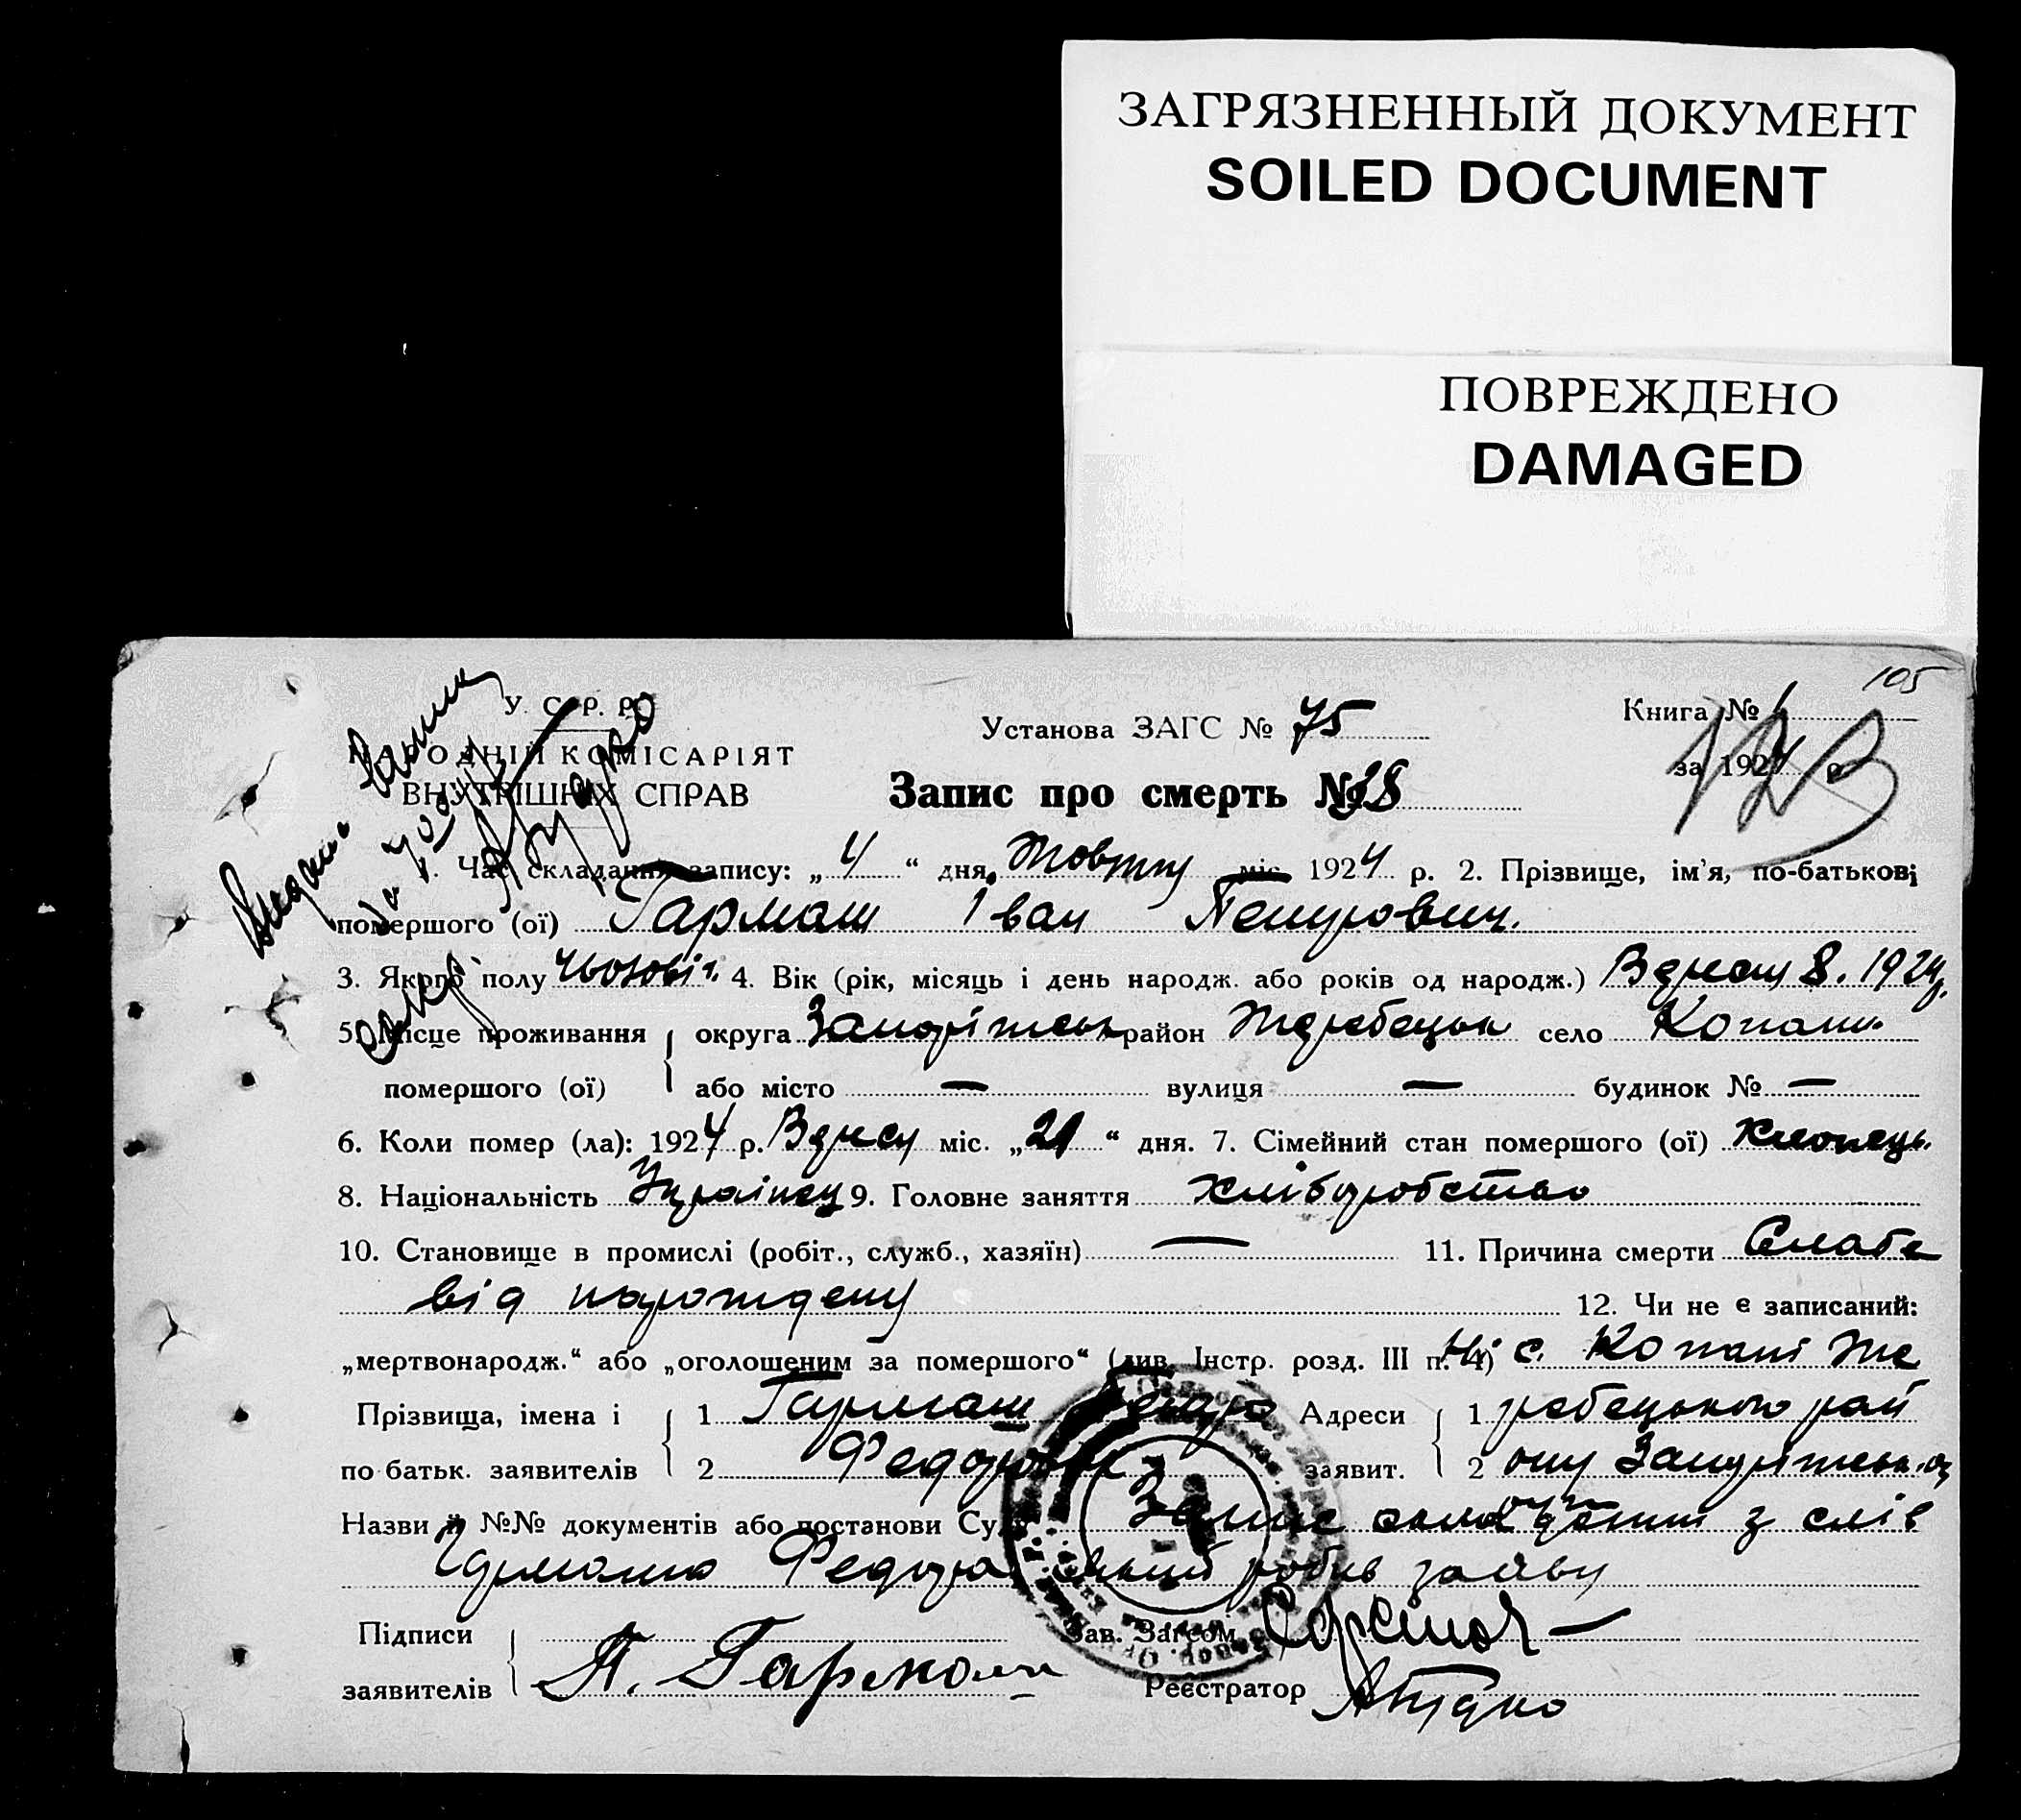 ЗАГРЯЗНЕННЫЙ ДОКУМЕНТ
SOILED DOCUMENT
ПОВРЕЖДЕНО
DAMAGED
105
У. С. Р. Р.
НАРОДНІЙ КОМІСАРІЯТ
ВНУТРІШНІХ СПРАВ
Установа ЗАГС № 75
Книга № 1
за 1924 р.
Запис про смерть № 38
1. Час складання запису: „4“ дня Жовтня міс. 1924 р. 2. Прізвище, ім'я, по-батькові
помершого (ої) Гармаш Іван Петрович.
3. Якого полу чоловіч. 4. Вік (рік, місяць і день народж. або років од народж.) Вересня 8. 1924 р.
5. Місце проживання округа Запоріжськ район Жеребецьк село Копани
помершого (ої) або місто — вулиця — будинок № —
6. Коли помер (ла): 1924 р. Вересн міс. „21“ дня. 7. Сімейний стан помершого (ої) хлопець.
8. Національність Українец 9. Головне заняття хліборобство
10. Становище в промислі (робіт., служб., хазяїн) — 11. Причина смерти Слабе
від нарождену 12. Чи не є записаний:
„мертвонародж.“ або „оголошеним за помершого“ (див. Інстр. розд. III п. 4) Ні с. Копані Же
Прізвища, імена і 1 Гармаш Адреси 1 ребецького рай
по батьк. заявителів 2 Федоров заявит. 2 ону Запоріжськ. ок
Назви й №№ документів або постанови Суду Запис з слів
Гармаша Федора робив заяву
Підписи Зав. Загсом
заявителів П. Гармаш Реєстратор